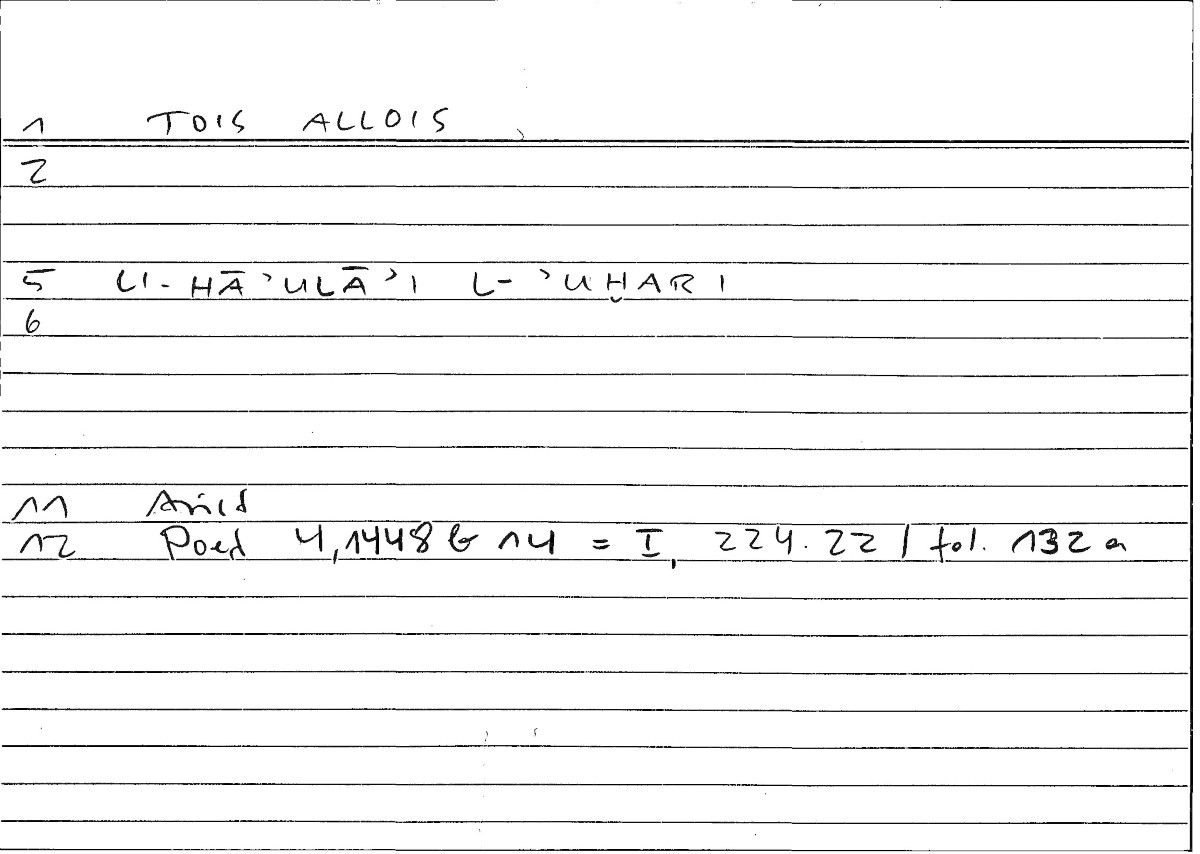 1 TOIS ALLOIS
2
5 LI-HĀʾULĀʾI L-ʾUḪARI
6
11 Arist
12 Poet 4,1448 b 14 = I, 224.22 / fol. 132 a